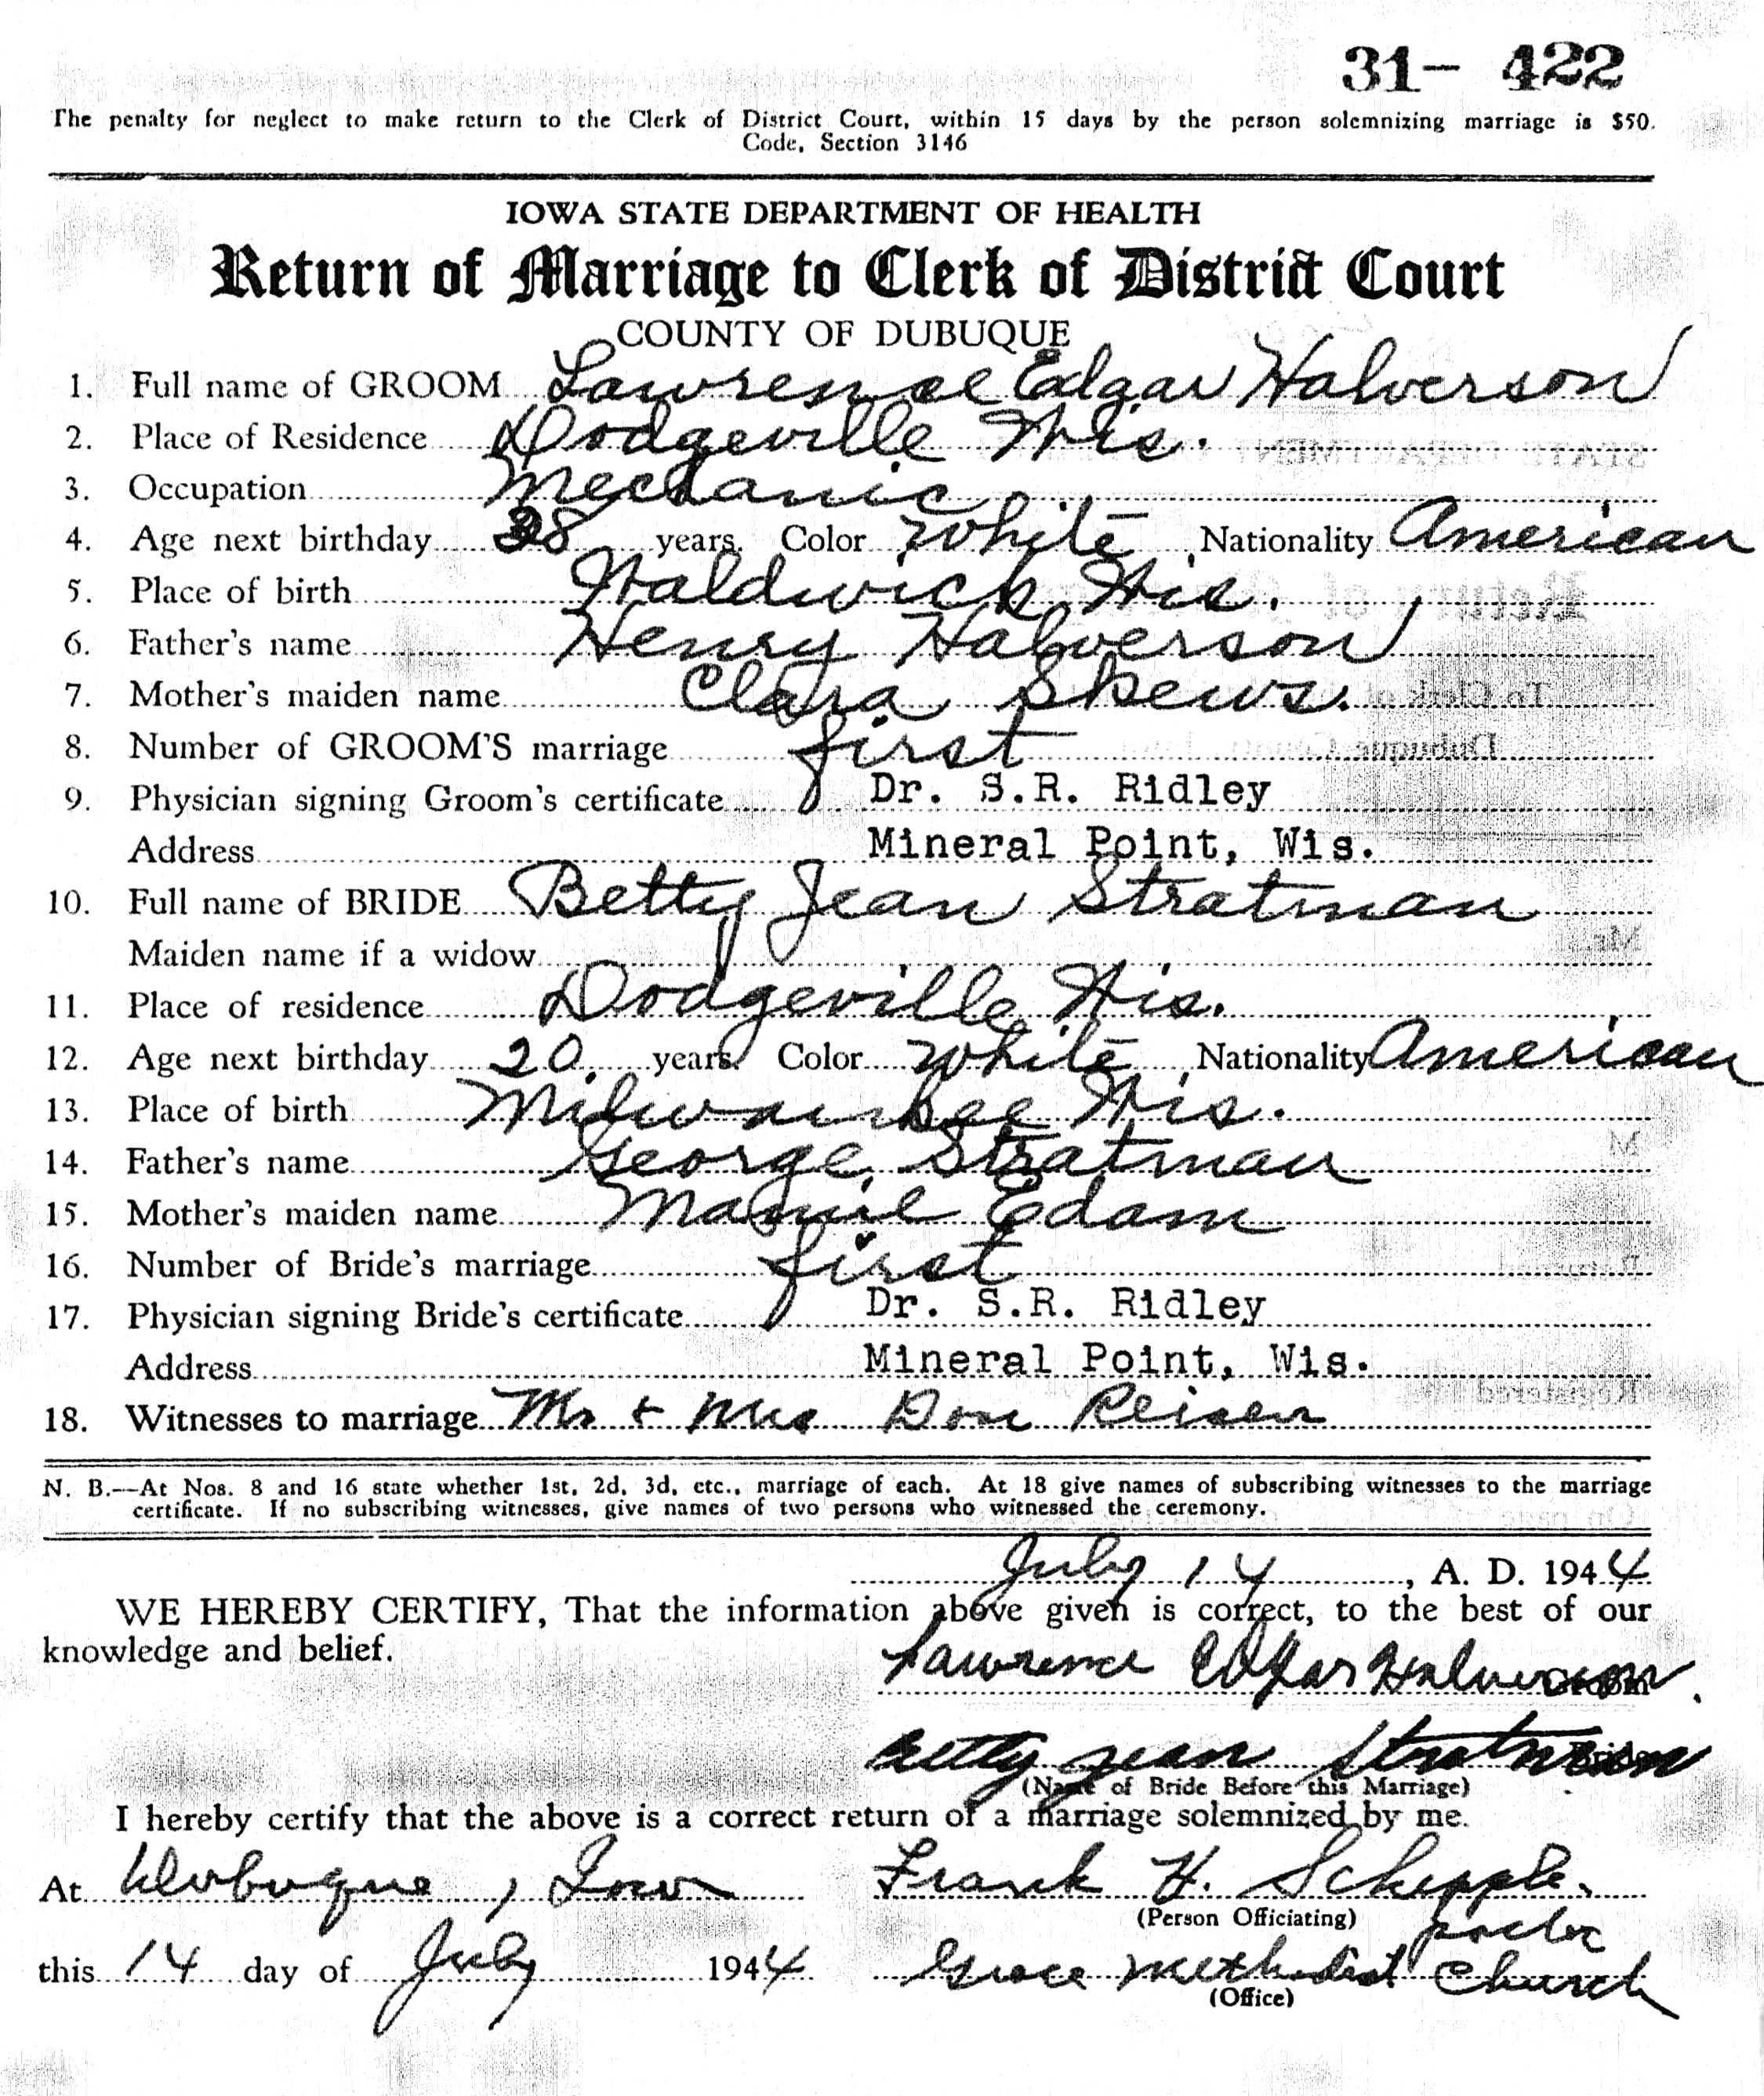 31- 422
The penalty for neglect to make return to the Clerk of District Court, within 15 days by the person solemnizing marriage is $50.
Code, Section 3146
IOWA STATE DEPARTMENT OF HEALTH
Return of Marriage to Clerk of District Court
COUNTY OF DUBUQUE
1. Full name of GROOM Lawrence Edgar Halverson
2. Place of Residence Dodgeville Wis.
3. Occupation Mechanic
4. Age next birthday 28 years. Color White, Nationality American
5. Place of birth Waldwick Wis.
6. Father's name Henry Halverson
7. Mother's maiden name Clara Skews.
8. Number of GROOM'S marriage first
9. Physician signing Groom's certificate Dr. S.R. Ridley
Address Mineral Point, Wis.
10. Full name of BRIDE Betty Jean Stratman
Maiden name if a widow
11. Place of residence Dodgeville Wis.
12. Age next birthday 20. years. Color White, Nationality American
13. Place of birth Milwaukee Wis.
14. Father's name George Stratman
15. Mother's maiden name Mamie Edam
16. Number of Bride's marriage first
17. Physician signing Bride's certificate Dr. S.R. Ridley
Address Mineral Point, Wis.
18. Witnesses to marriage Mr + Mrs Don Reisen
N. B.—At Nos. 8 and 16 state whether 1st, 2d, 3d, etc., marriage of each. At 18 give names of subscribing witnesses to the marriage
certificate. If no subscribing witnesses, give names of two persons who witnessed the ceremony.
July 14, A. D. 1944
WE HEREBY CERTIFY, That the information above given is correct, to the best of our
knowledge and belief.
Lawrence Edgar Halverson.
Betty Jean Stratman
(Name of Bride Before this Marriage)
I hereby certify that the above is a correct return of a marriage solemnized by me.
At Dubuque, Iowa Frank H.
(Person Officiating)
pastor
this 14 day of July 1944 Grace Methodist Church
(Office)